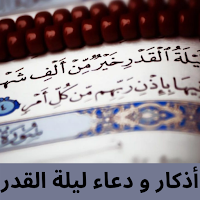 يْلَةُ ٱلْقَدْرِ خَيْرٌ مِّنْ أَلْفِ شَهْ
فِيهَا بِإِذْنِ رَبِّهِم مِّن كُلِّ أَمْرٍ
سُورَةُ
أذكار و دعاء ليلة القدر